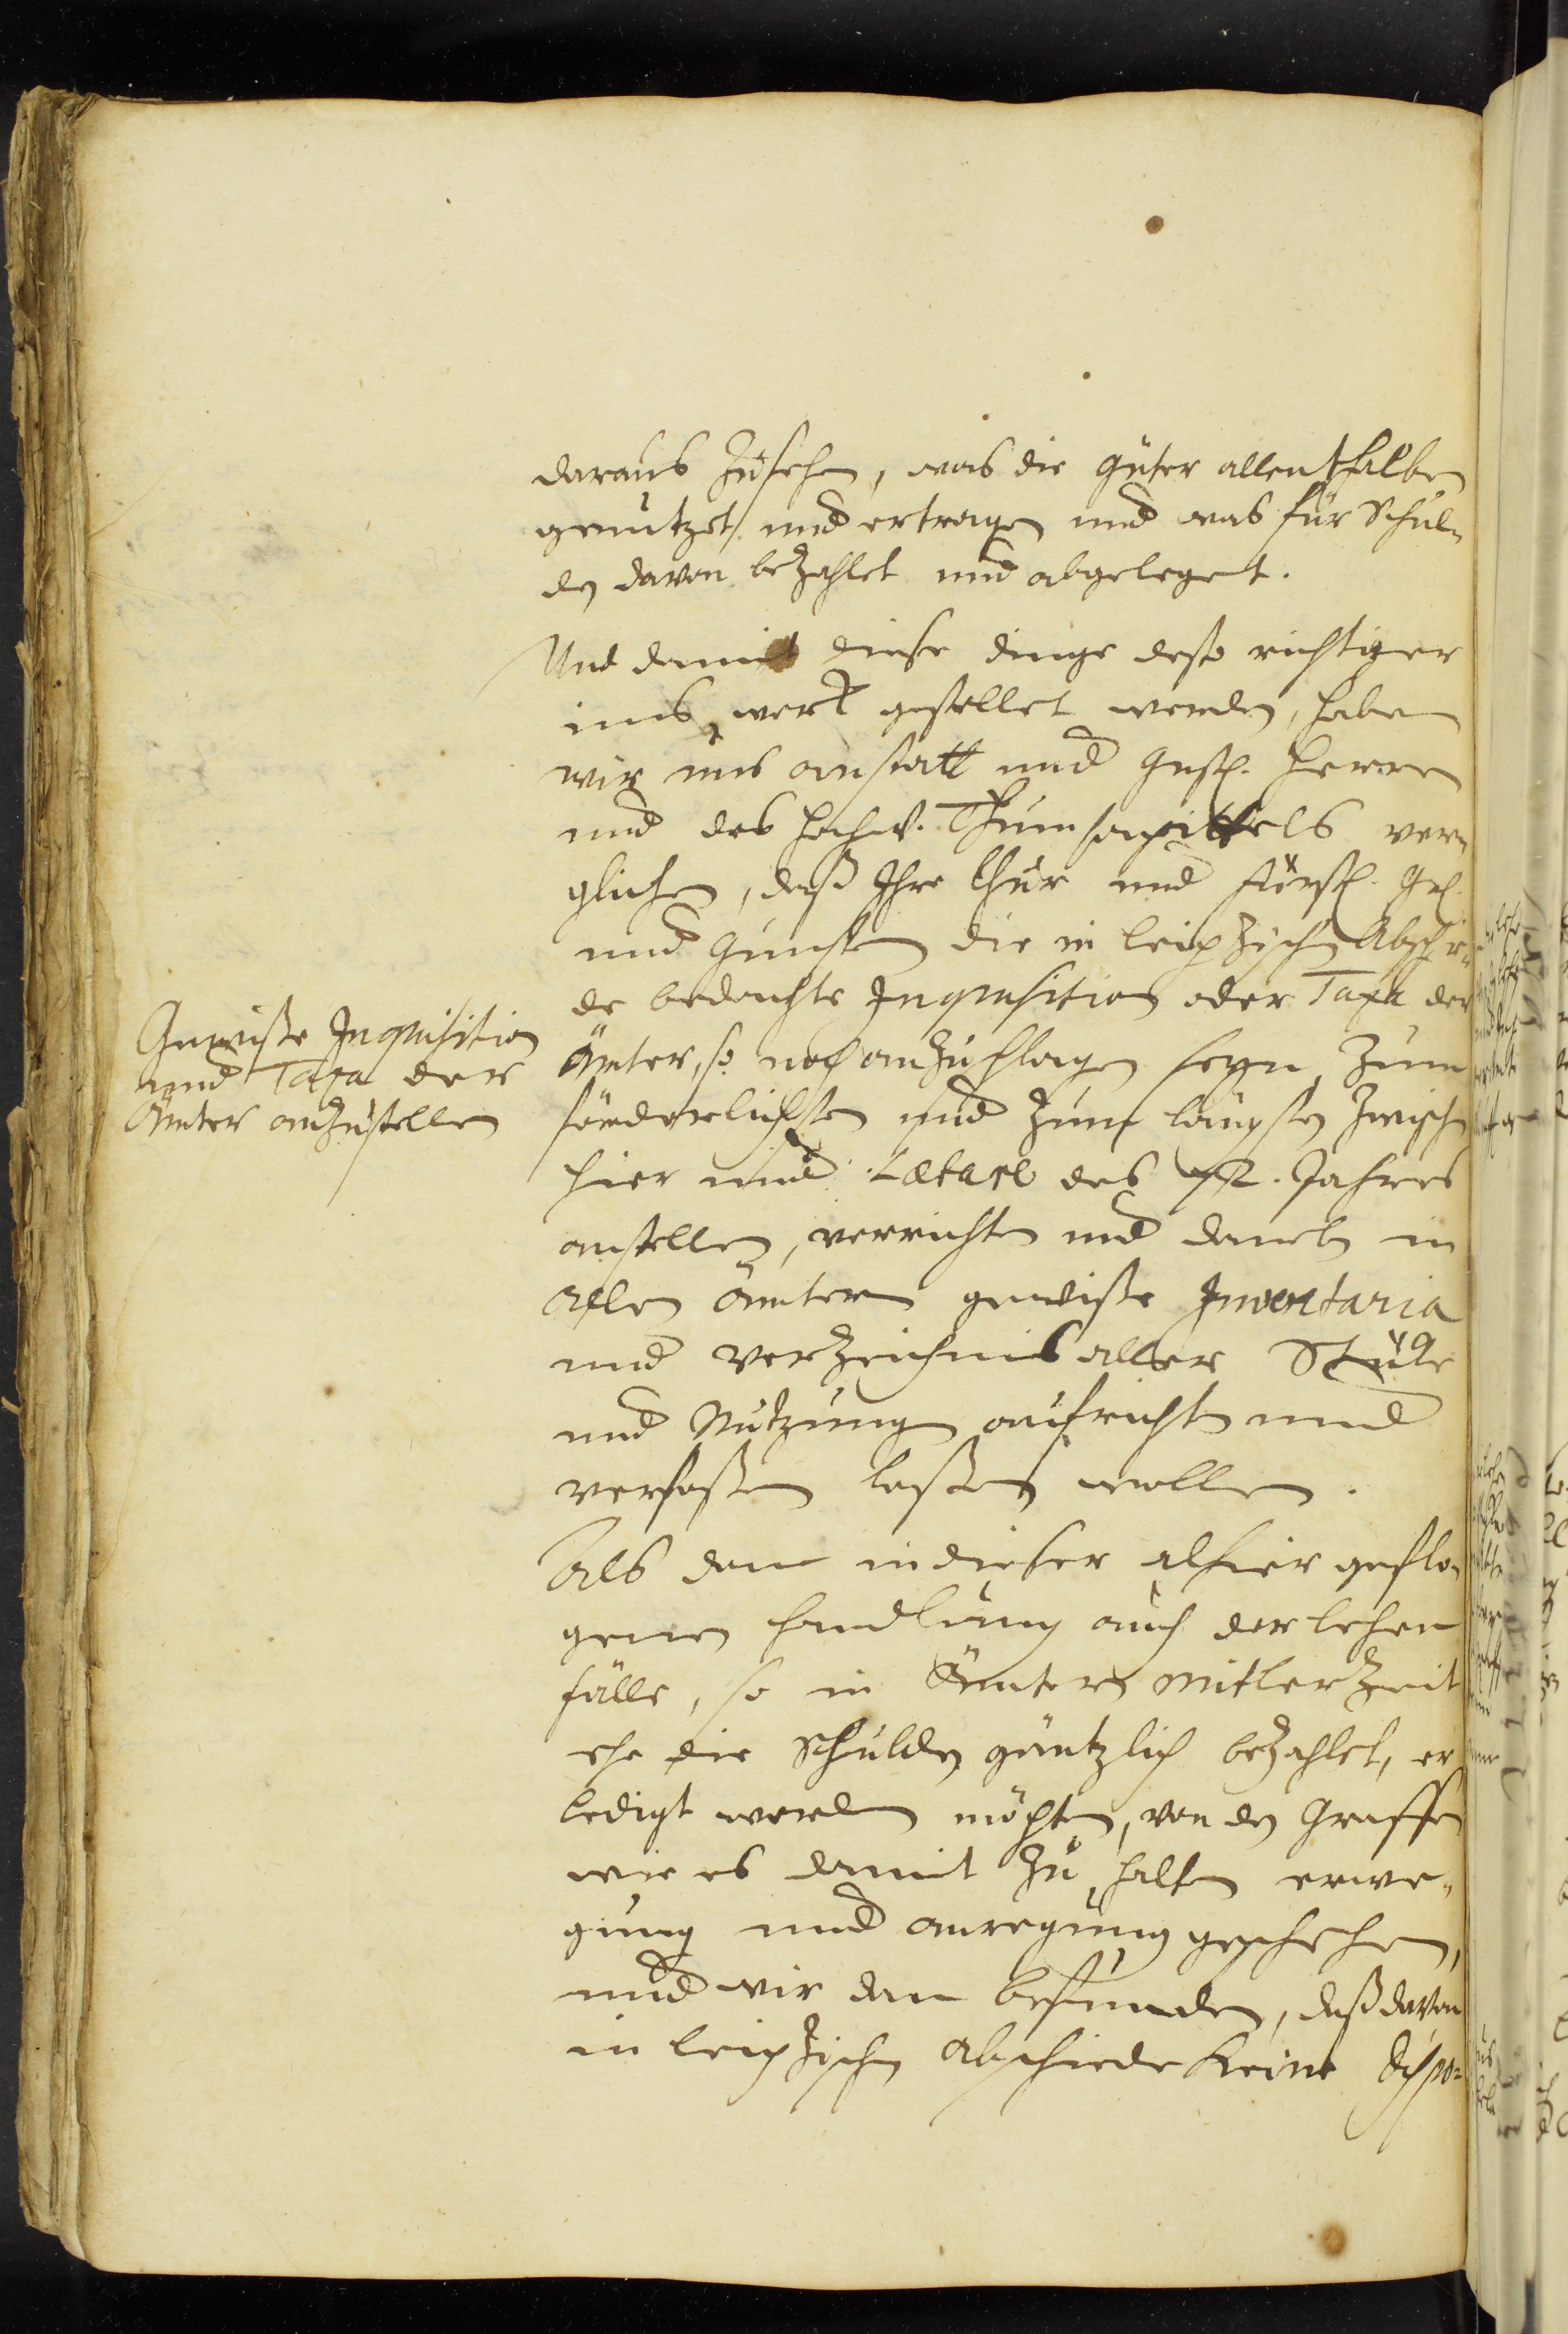 daraus Zusehen, was die Güter allenthalben
genutzet und ertragen und was für Schul-
den davon bezahlet und abgeleget.
Und damit diese dinge desto richtiger
ins werk gestellet werden, haben
wir uns anstatt und Gnst. Herren
und des Hochw. Thumcapittels ver-
glichen, daß Ihre Chur und Fürstl. Gn.
und Gunsten die in leipzischen Abschie-
de bedachte Inquisition oder Taxa der
Ämter, so noch anzuschlagen seyn, zum
förderlichsten und zum längsten zwischen
hier und Lætare des 72. Jahres
anstellen, verrichten und daneben in
allen ämtern gewisse Inventaria
und verzeichnis aller Stücke
und Nutzung aufrichten und
verfassen lassen wollen.
Gewisse Inquisition
und Taxa der
Ämter anzustellen
Als dan in dieser alhier gepflo-
genen handlung auch der lehen
fälle, so in Ämtern mitler Zeit
ehe die Schulden gäntzlich bezahlet, er
ledigt werden möchten, von den Graffen
wie es damit zu halten erwe-
gung und anregung geschehen,
und wir dan befunden, daß davon
in leipzischen abschiede keine dispo-